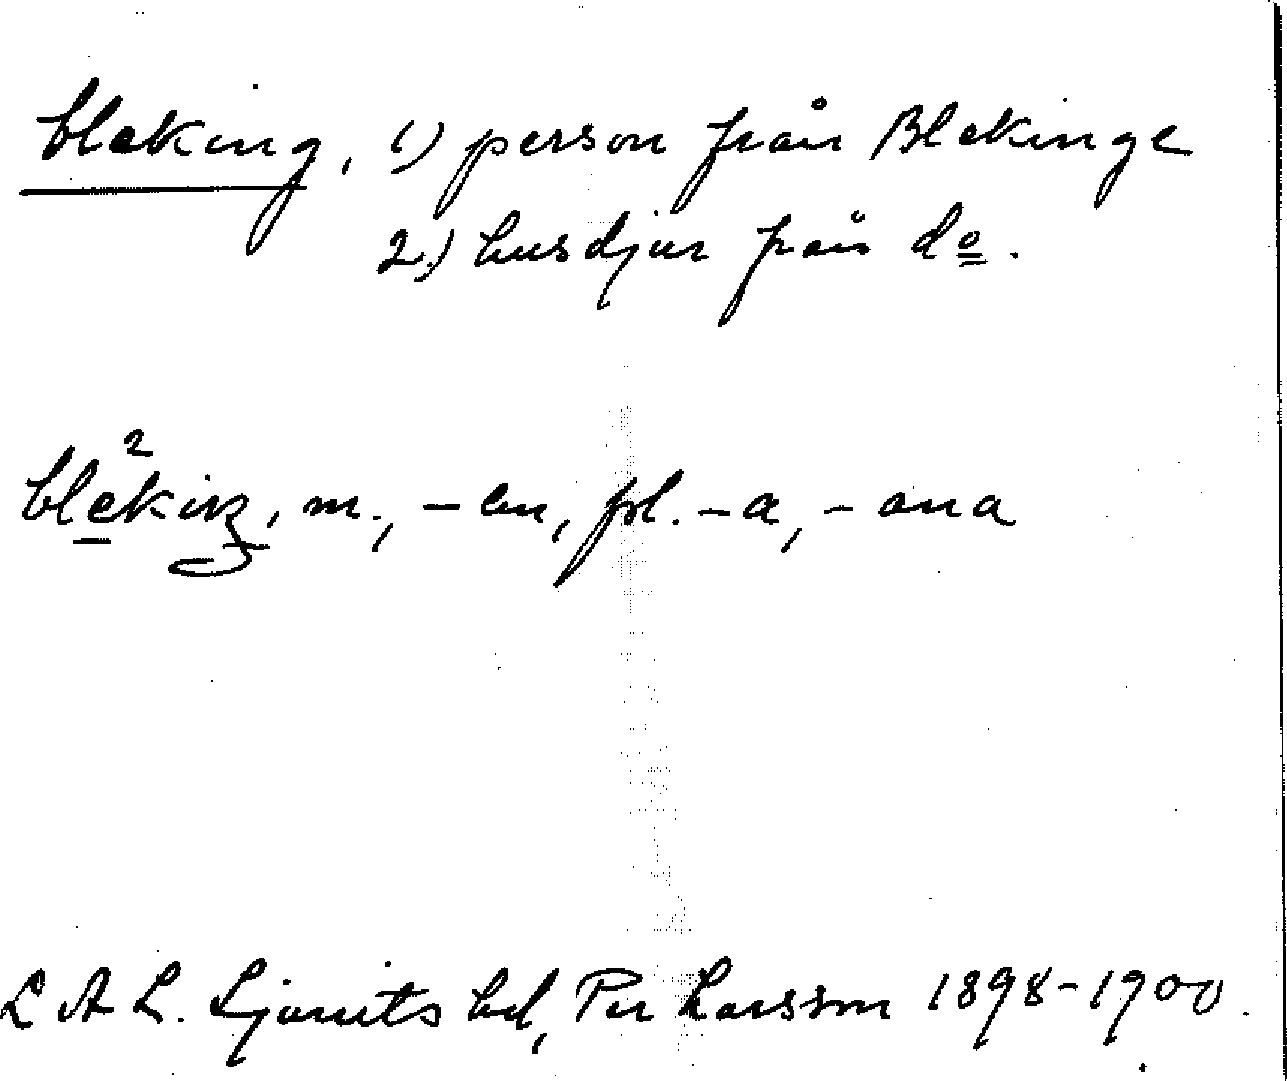 bleking, 1) person från Blekinge
2.) husdjur från do.
blekiŋ, m., -en, pl. -a, -ana
L A L. Ljunits hd, Per Larsson 1898-1900.